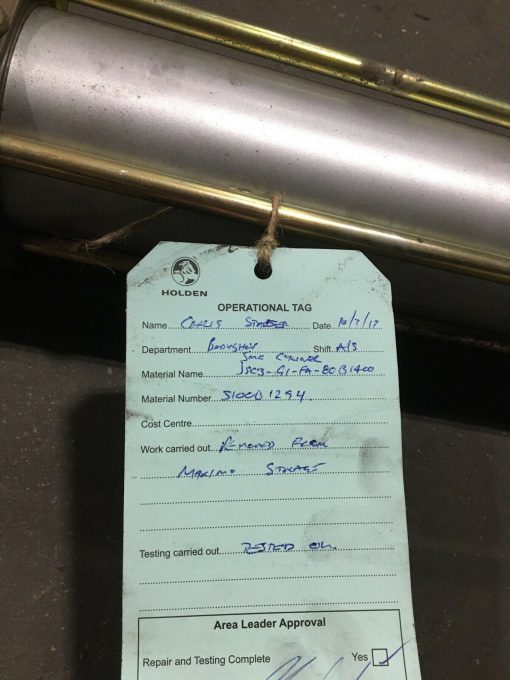 HOLDEN
OPERATIONAL TAG
Name CHRIS Date 10/7/17
Department BODYSHOP Shift A/S
SMC
Material Name
Material Number
Cost Centre
Work carried out REMOVED FROM
MAXIMO STORAGE
Testing carried out TESTED OK.
Area Leader Approval
Repair and Testing Complete Yes